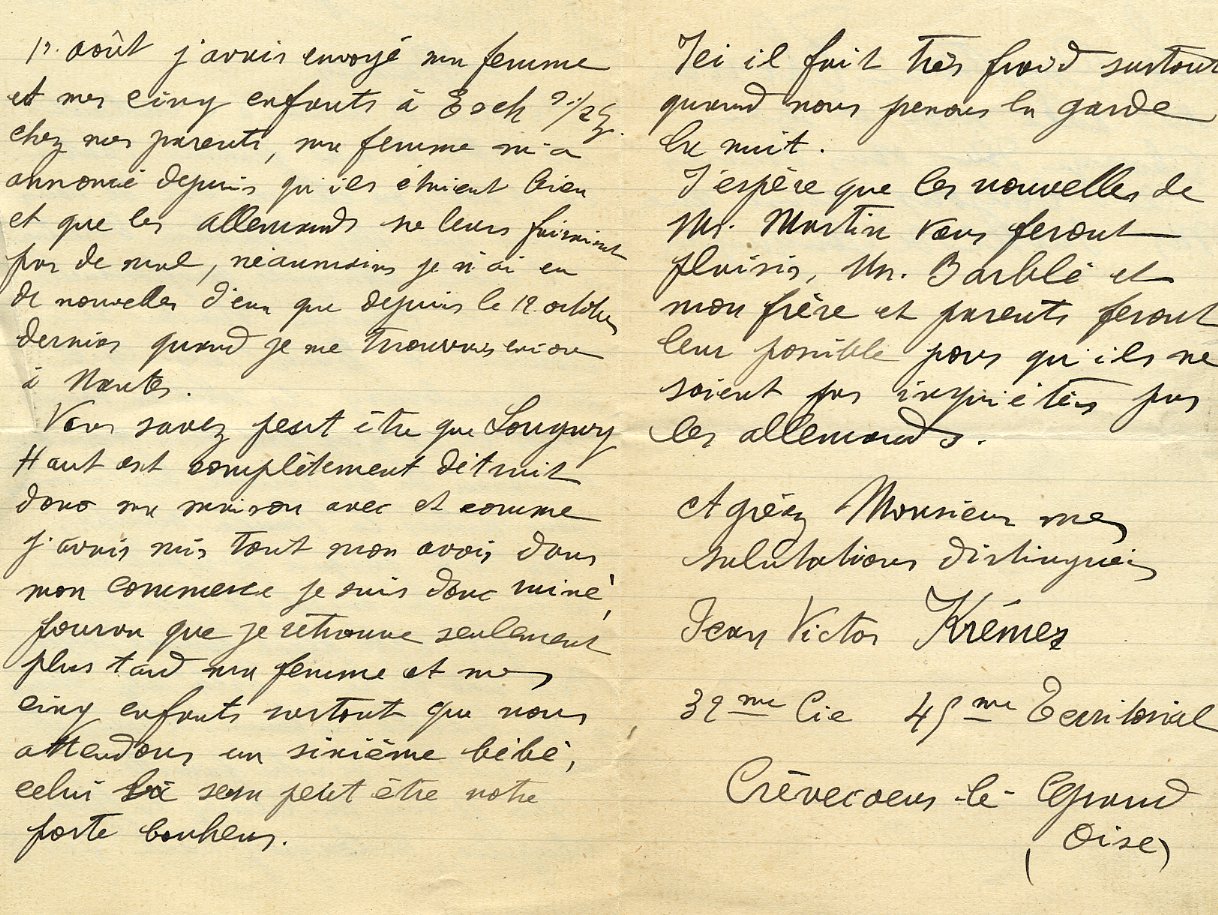 août j'avais envoyé ma femme
et mes cinq enfants à Esch s/
chez mes parents, ma femme m'a
annoncé depuis qu'ils étaient bien
et que les allemands ne leurs faisaient
pas de mal, néaumoins je n'ai eu
de nouvelles d'eux que depuis le 12. octobre
dernier quand je me trouvais encore
à Nantes.
Vous savez peut être que Longwy
Haut est complètement détruit
donc ma maison avec et comme
j'avais mis tout mon avoir dans
mon commerce je suis donc ruiné,
pourvu que je retrouve seulement
plus tard ma femme et mes
cinq enfants surtout que nous
attendons un sixième bébé,
celui là sera peut être notre
porte bonheur.
Ici il fait très froid surtout
quand nous prenons la garde
la nuit.
J'espère que les nouvelles de
Mr. Martin vous feront
plaisir, Mr. Barblé et
mon frère et parents feront
leur posible pour qu'ils ne
soient pas inquiétés par
les allemands.
Agréez Monsieur mes
salutations distinguées
Jean Victor Krémer
32me Cie 45me Territorial
Crèvecoeur-le-Grand
(Oise)